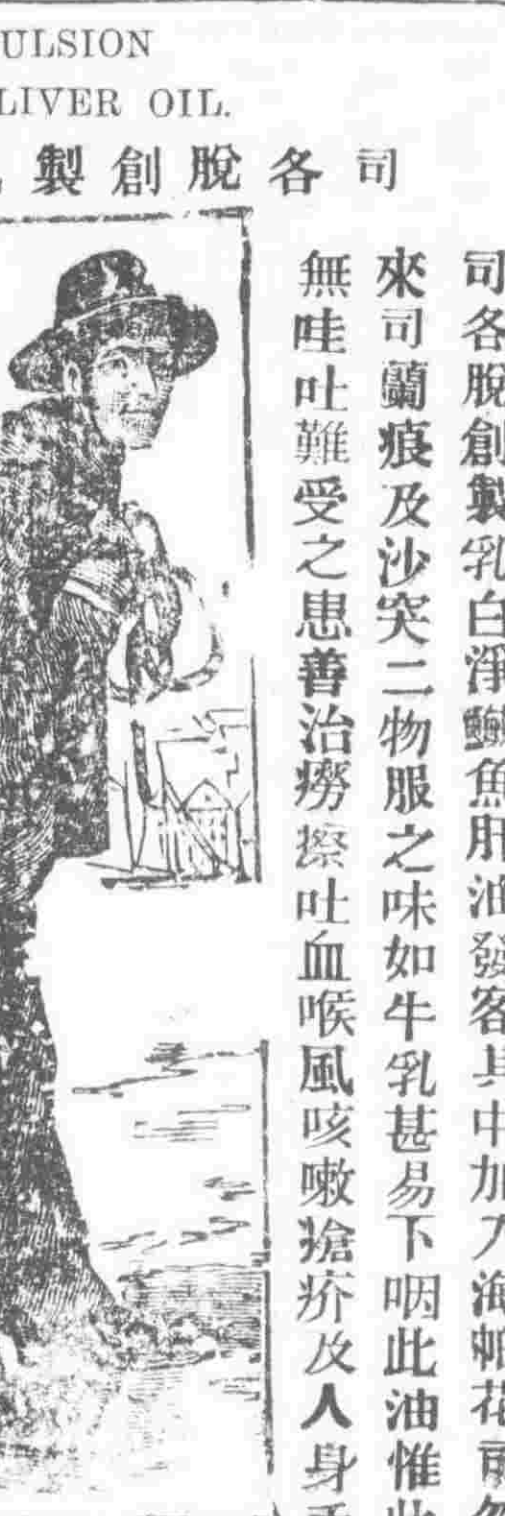 ULSION
LIVER OIL.
司各脫創製
司各脫創製乳白淨鰵魚肝油發客其中加入海帕花
來司蘭痕及沙突二物服之味如牛乳甚易下咽此油惟
無哇吐難受之患善治癆瘵吐血喉風咳嗽瘡疥及人身